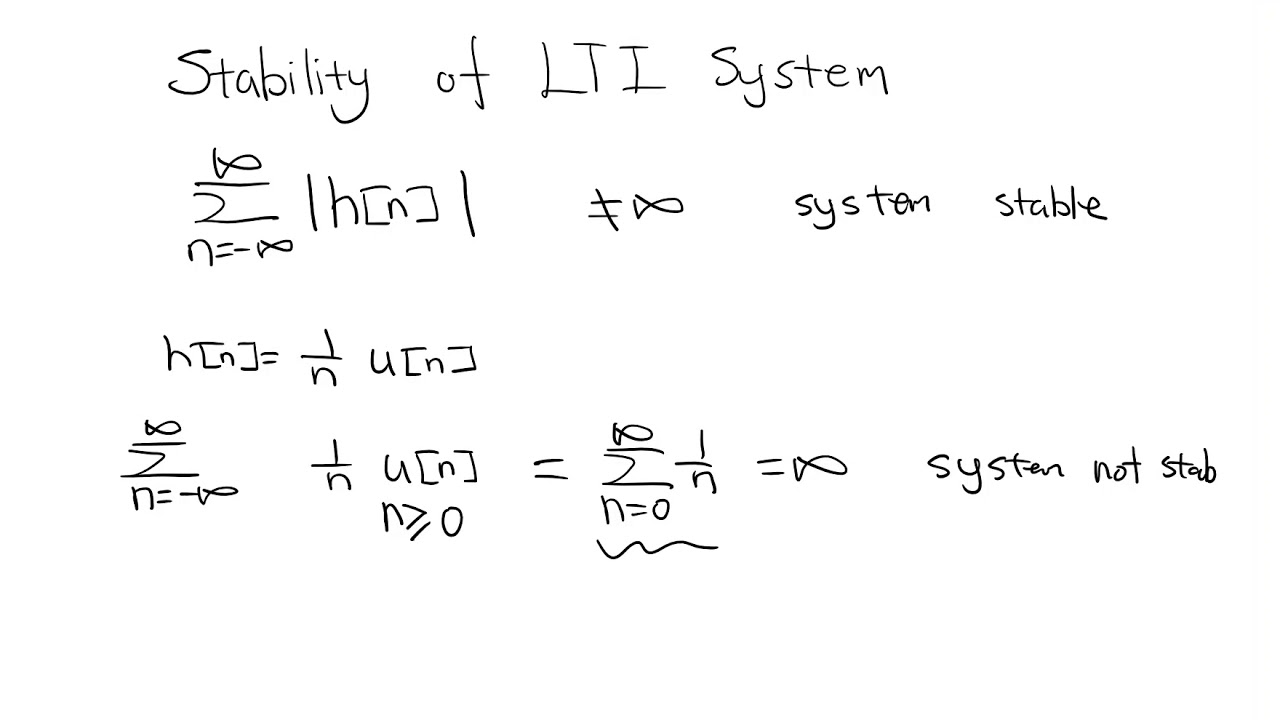 Stability of LTI System
∞ ∑ n=-∞ |h[n]| ≠∞ system stable
h[n]= 1/n u[n]
∞ ∑ n=-∞ 1/n u[n] n≥0 = ∞ ∑ n=0 1/n =∞ system not stab